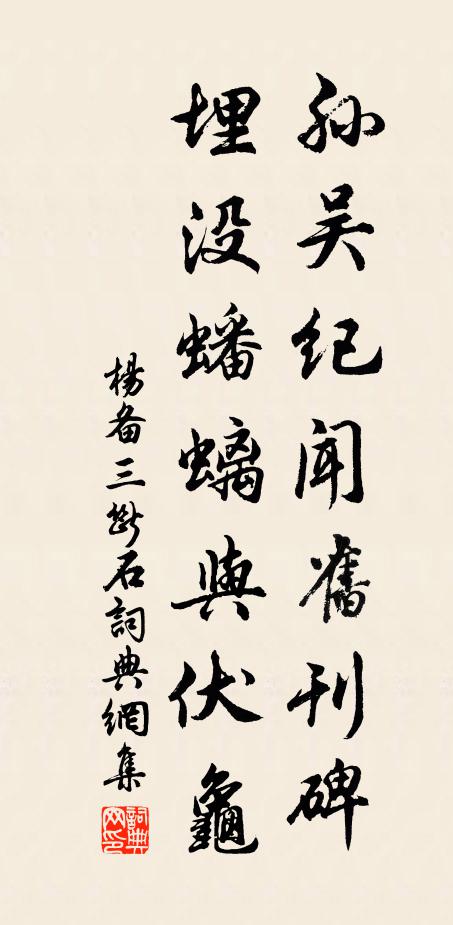 孙吴纪闻旧刊碑
埋没蟠螭与伏龟
杨备三断石词典网集
词典网印